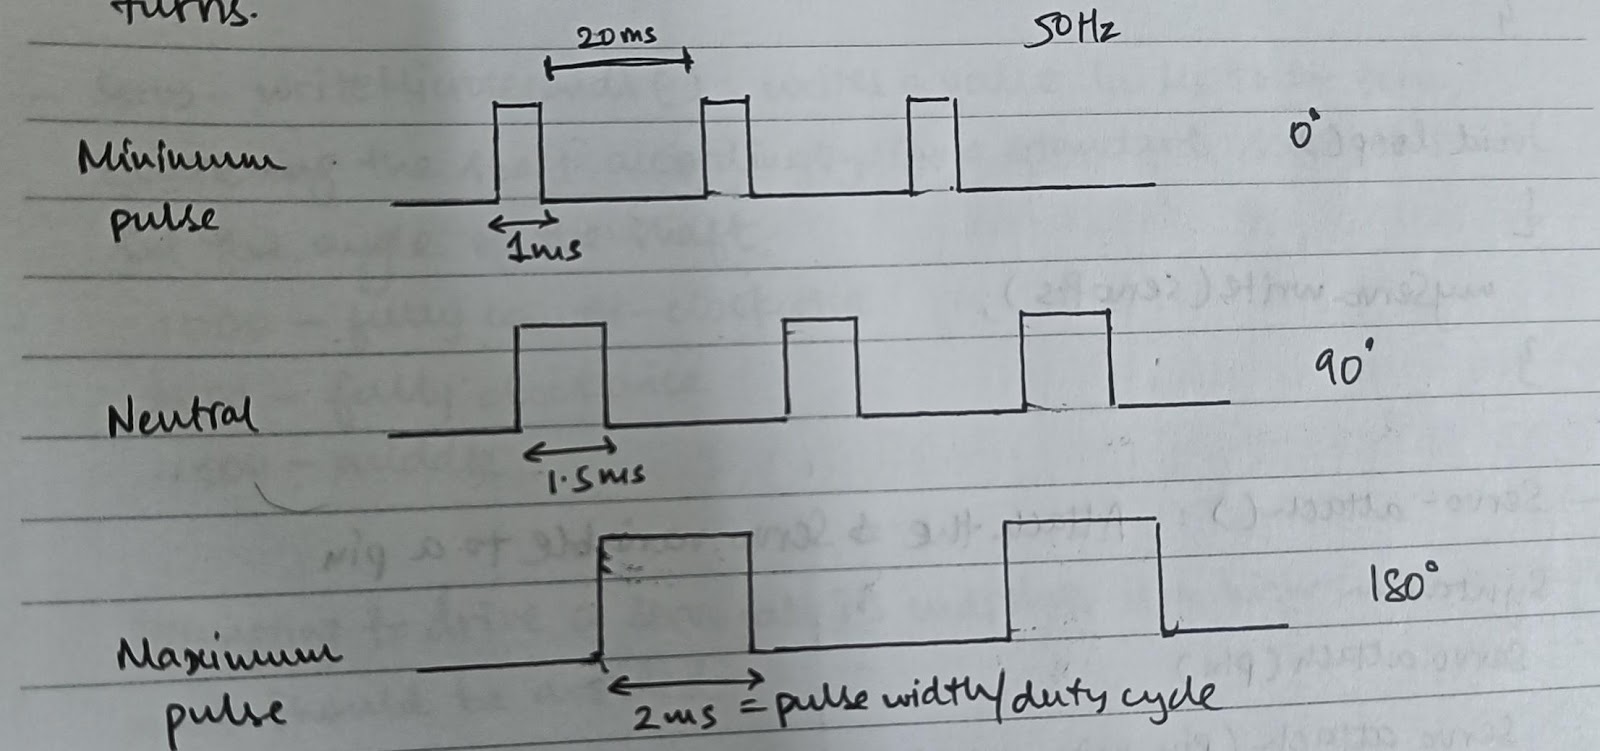 turns.
20ms
50Hz
Minimum
pulse
0°
1ms
Neutral
90°
1.5ms
Maximum
pulse
180°
2ms = pulse width/duty cycle